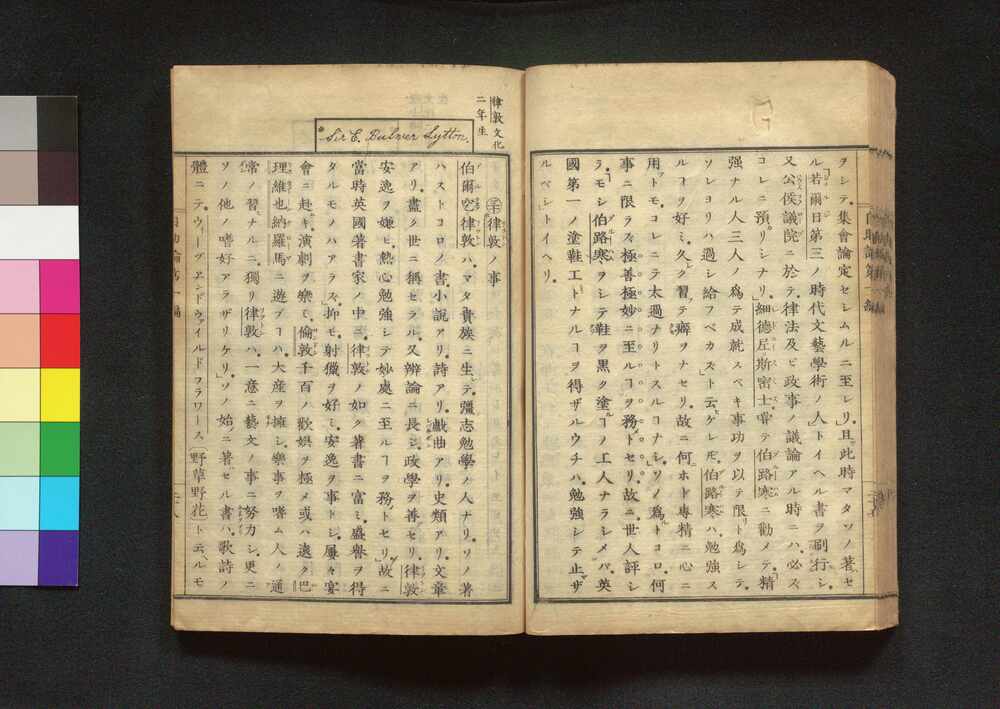 ヲシテ。集會論定セシムルニ至レリ。且此時マタソノ著ハセ
ル「若爾日第三ノ時代文藝學術ノ人」トイヘル書ヲ刷行シ。
又公侯議院ニ於テ。律法及ビ政事ノ議論アル時ニハ。必ズ
コレニ預リシナリ」細德尼斯密士嘗テ伯路寒ニ勸メテ「精
强ナル人三人ノ爲テ成就スベキ事功ヲ以テ限トメ爲シテ。
ソレヨリハ過シ給フベカラズ」ト云ケレドモ。伯路寒ハ勉强ス
ルヿヲ好ミ。久ク習テ癖ヲナセリ。故ニ何ホド專精ニ心ニ
用トモ。コレニテ太過ナリトスルコナシ」ソノ爲トコロ。何
事ニ限ラズ。極善極妙ニ至ルヿヲ務トセリ。故ニ世人評シ
ラ。モシ伯路寒ヲシテ鞋ヲ黑ク塗ルヿノ工人ナラシメバ。英
國第一ノ塗鞋工トナルヿヲ得ザルウチハ。勉强シテ止ザ
ルベシ」トイヘリ。
律敦文化
二年生
Sir E. Bulwer Lytton.
律敦ノ事
伯爾空律敦ハ。マタ貴族ニ生レテ。彊志勉學ノ人ナリ。ソノ著
ハストコロノ書。小說アリ。詩アリ。戲曲アリ。史類アリ。文章
アリ。盡ク世ニ稱セラル。又辨論ニ長シ。政學ヲ善セリ。律敦
安逸ヲ嫌ヒ。熱心勉强シテ妙處ニ至ルヿヲ務トセリ」故ニ
當時英國著書家ノ中ニ。律敦ノ如ク著書ニ富ミ。盛譽ヲ得
タルモノハアラズ」抑モ。射獵ヲ好ミ。安逸ヲ事トシ。屢々宴
會ニ赴キ。演劇ヲ樂ミ。倫敦千百ノ歡娯ヲ極メ或ハ遠ク巴
理維也納羅馬ニ遊ブヿハ。大產ヲ擁シ樂事ヲ嗜ム人ノ通
常ノ習ナルニ。獨リ律敦ハ。一意ニ藝文ノ事ニ努力シ。更ニ
ソノ他ノ嗜好アラザリケリ」ソノ始ニ著セル書ハ。歌詩ノ
體ニテ。ウィーヅ。ヱンドウァイルドフラワース 野草野花ト云ヘルモ